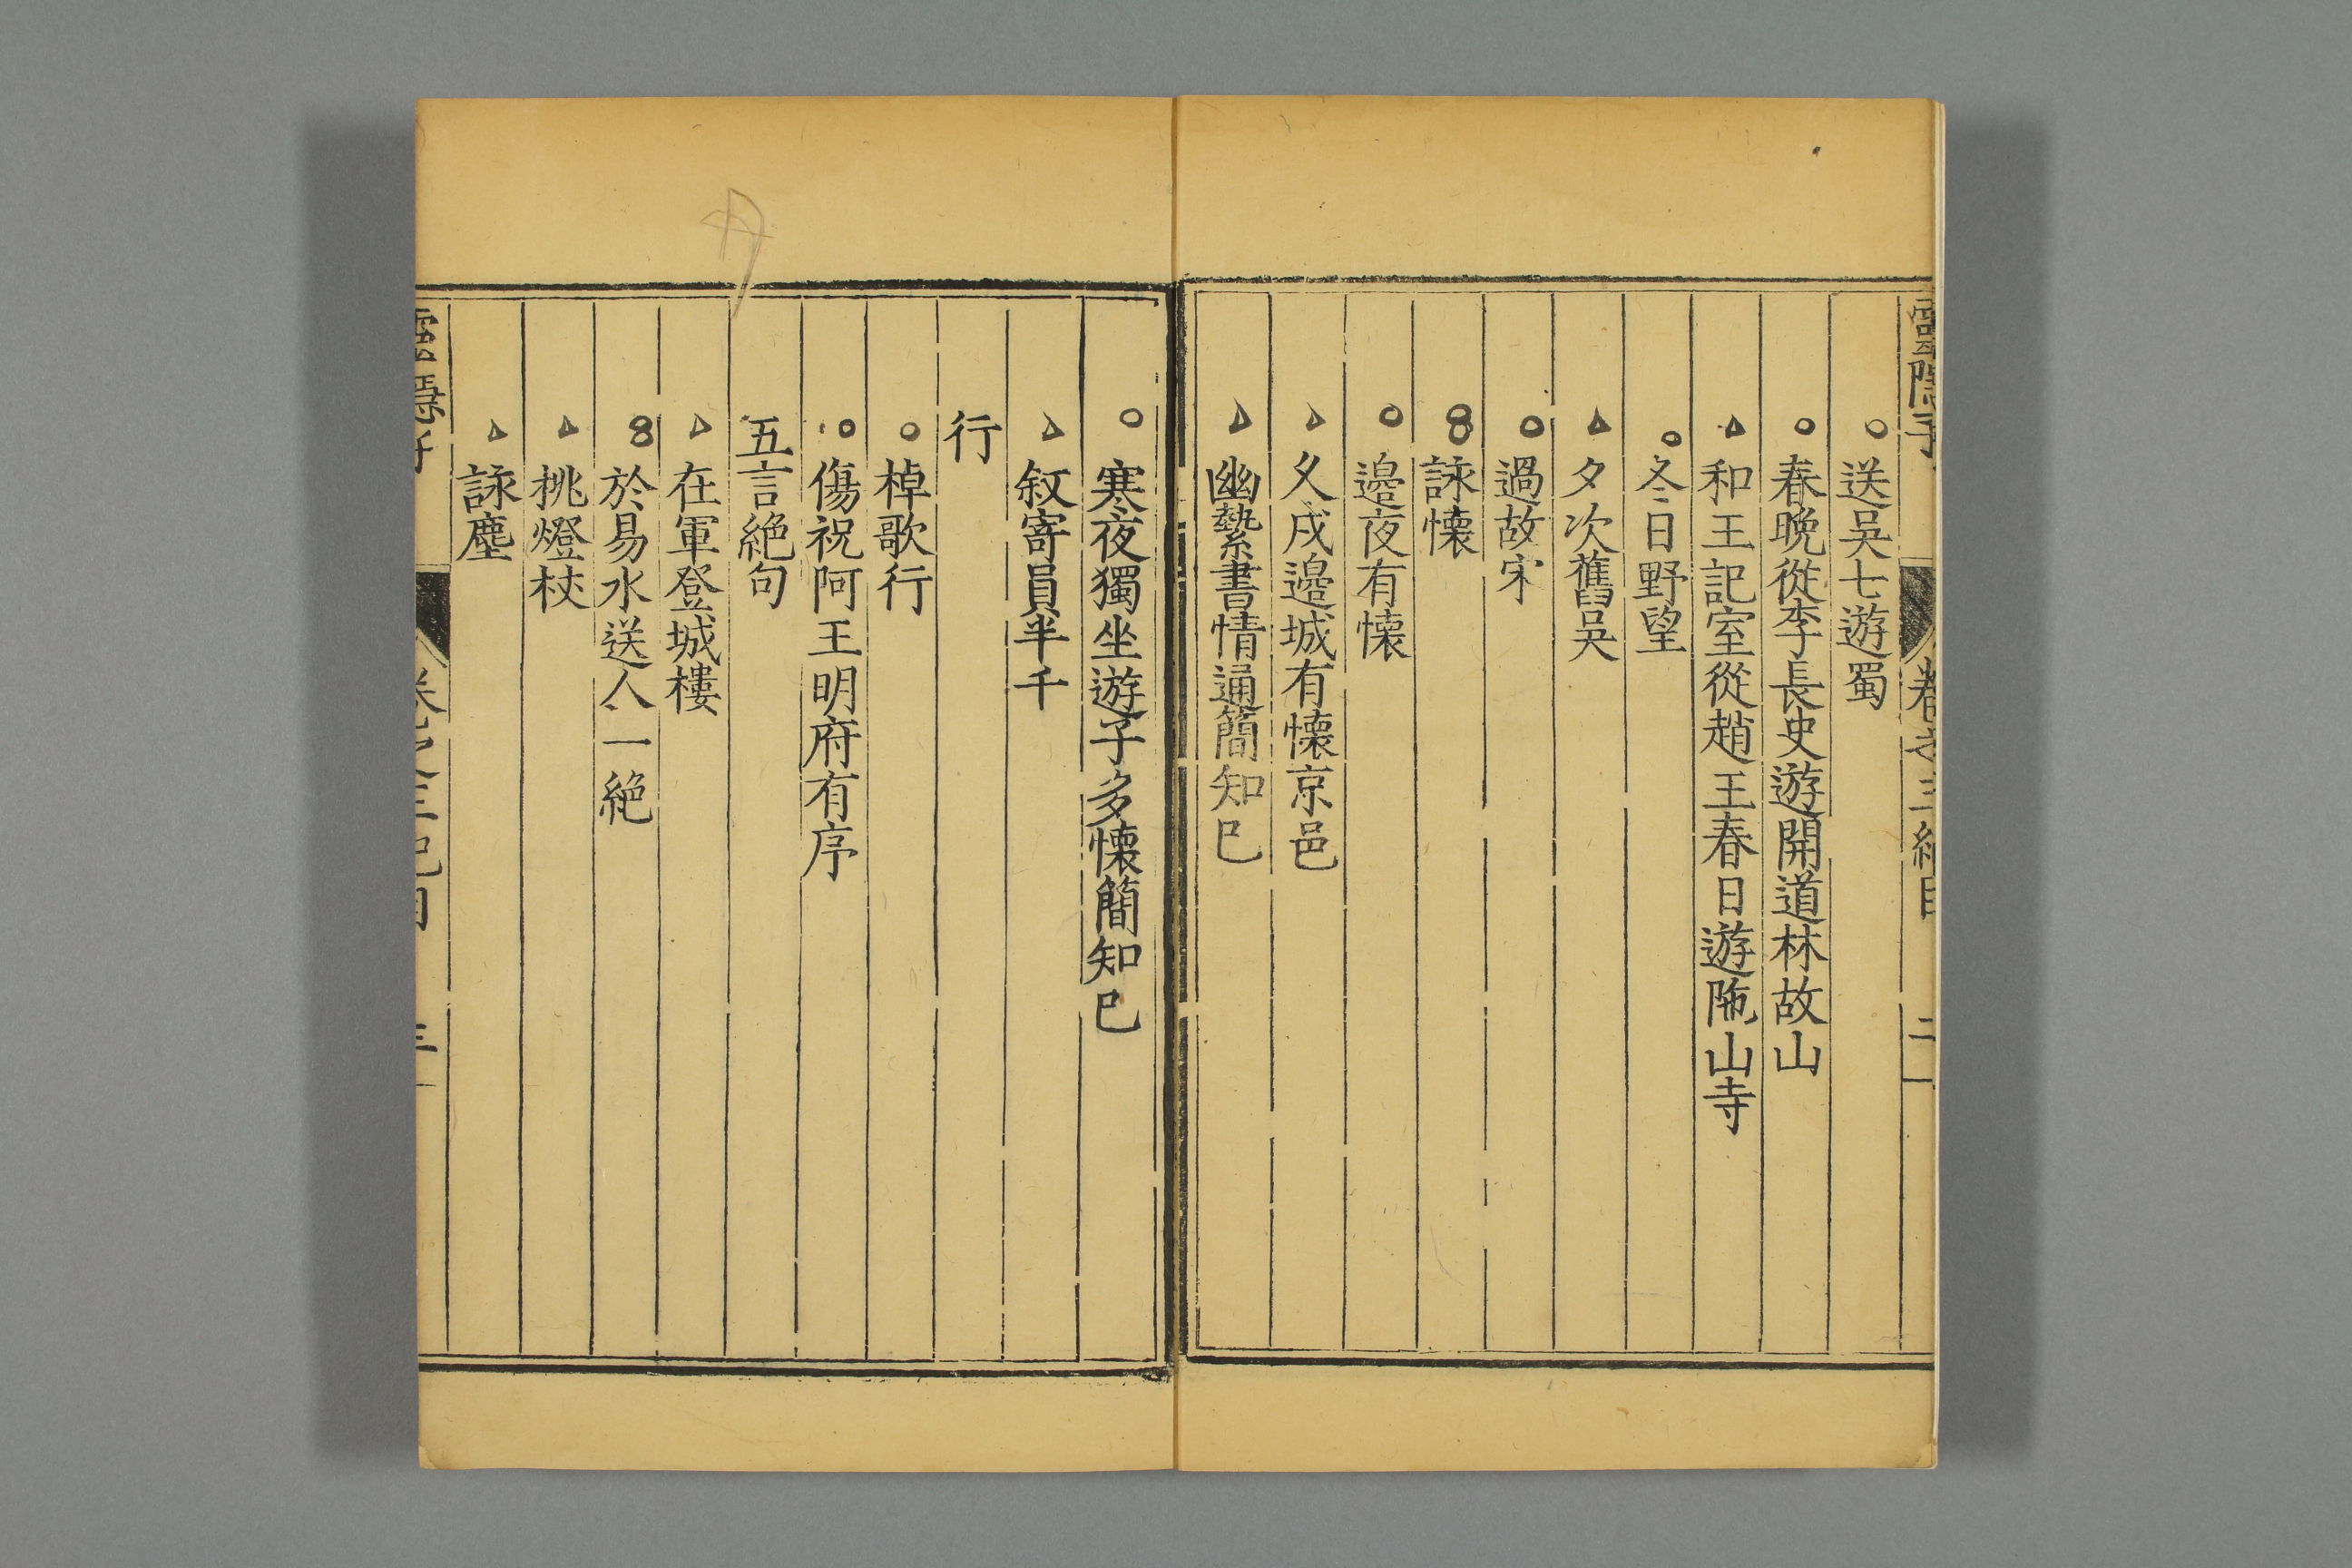 靈隱子 卷之三細目 二
送吳七遊蜀
春晚從李長史遊開道林故山
和王記室從趙王春日遊陁山寺
冬日野望
夕次舊吳
過故宋
詠懐
邉夜有懐
久戍邉城有懐京邑
幽縶書情通簡知巳
寒夜獨坐遊子多懐簡知巳
敘寄員半千
行
棹歌行
傷祝阿王明府有序
五言絶句
在軍登城樓
於易水送人一絶
挑燈杖
詠塵